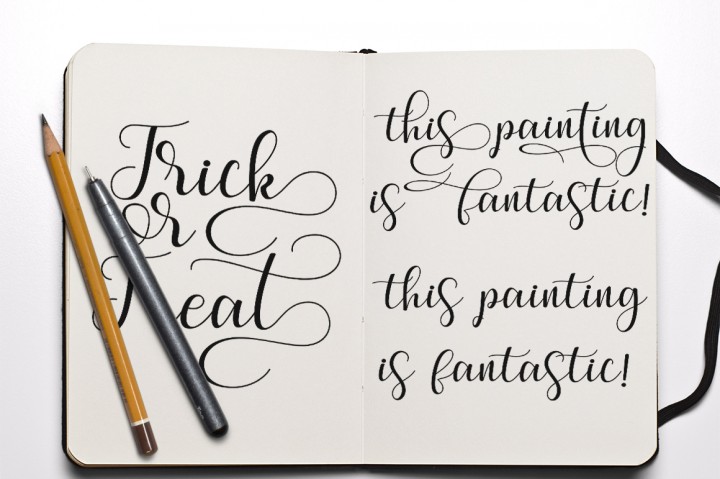 Trick
or
Treat
this painting
is fantastic!
this painting
is fantastic!